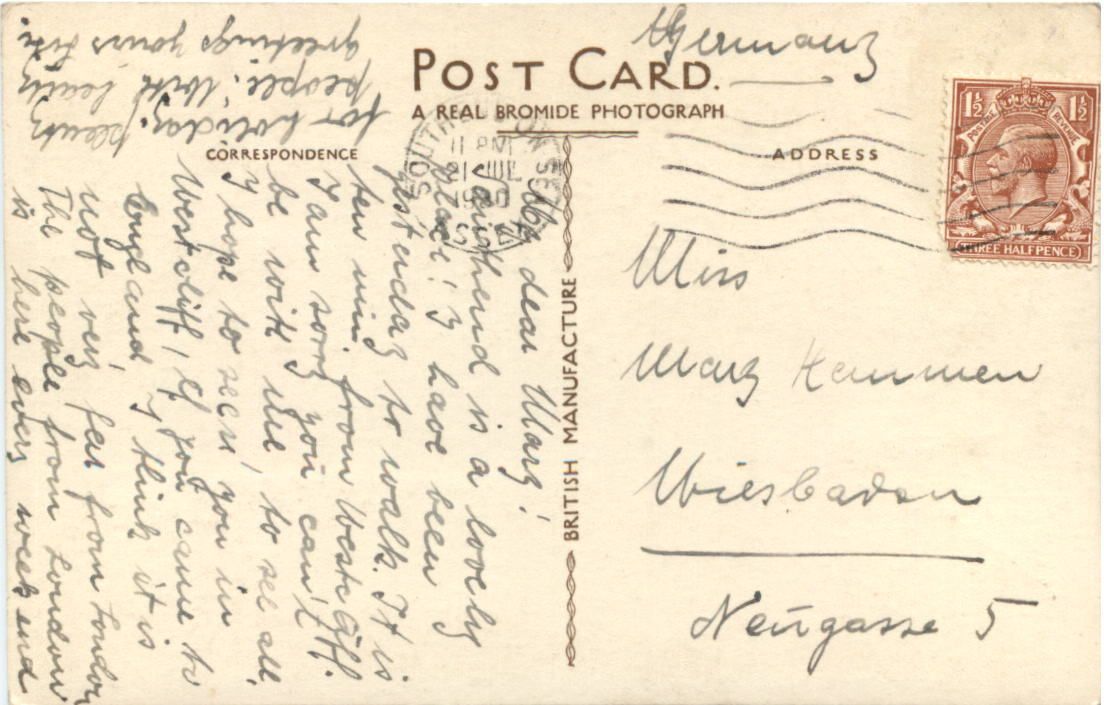 POST CARD.
A REAL BROMIDE PHOTOGRAPH
CORRESPONDENCE
ADDRESS
BRITISH MANUFACTURE
11 PM
21 JUL
1930
1½ 1½
POSTAGE REVENUE
THREE HALFPENCE
Germany
Miss
Mary Hemmen
Wiesbaden
Neugasse 5
My dear Mary!
Southend is a lovely
place! I have been
yesterday to walk. It is
ten min from Westcliff.
I am sorry you can't
be with me, to see all.
I hope to seen, you in
Westcliff, if you came to
England I think it is
not very far from London
The people from London
is here every week end
for holiday. plenty
people. With hearty
greetings yours